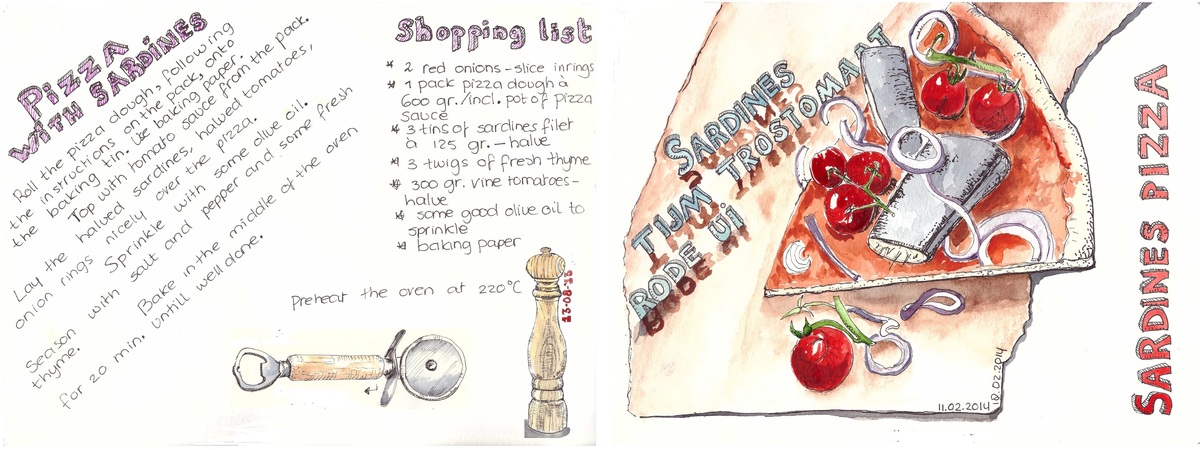 Pizza
with Sardines
Roll the pizza dough, following
the instructions on the back, onto
the baking tin. Use baking paper.
Top with tomato sauce from the pack.
Lay the halved sardines, halved tomatoes,
onion rings nicely over the pizza.
Sprinkle with some olive oil.
Season with salt and pepper and some fresh
thyme.
Bake in the middle of the oven
for 20 min. untill well done.
Shopping list
* 2 red onions - slice in rings
* 1 pack pizza dough à
600 gr./incl. pot of pizza
sauce
* 3 tins of sardines filet
à 125 gr. - halve
* 3 twigs of fresh thyme
* 300 gr. vine tomatoes -
halve
* some good olive oil to
sprinkle
* baking paper
Preheat the oven at 220°C
13-08-13
Sardines
Tijm Trostomaat
Rode ui
11.02.2014
18.02.2014
Sardines Pizza